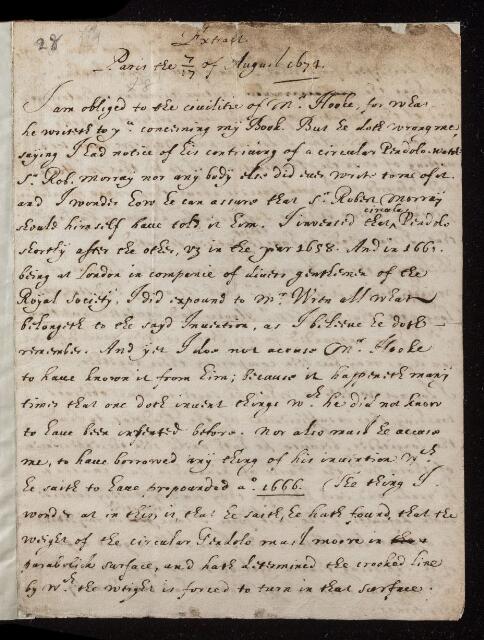 28
Extract
Paris the 7/17 of August 1673.
I am obliged to the civilitie of Mr. Hooke, for what
he writeth to yu concerning my Book. But he doth wrong me,
saying I had notice of his contriving of a circular Pendolo-watch
Sr. Rob. Morray nor any body else did ever write to me of it.
and I wonder how he can assure that Sr. Robert Morray
should himself have told it him. I invented that circular Pendolo
shortly after the other, vz in the year 1658. And in 1661
being at London in companee of divers gentlemen of the
Royal Society, I did expound to Mr Wren all what
belongeth to the sayd Invention, as I beleeve he doth
remember. And yet I doe not accuse Mr. Hooke
to have known it from him; because it happeneth many
times that one doth invent things wch he did not know
to have been invented before. Nor also must he accuse
me, to have borrowed any thing of his invention wch
he saith to have propounded ao. 1666. The thing I
wonder at in this, is, that he saith, he hath found, that the
weight of the circular Pendolo must moove in
parabolick surface, and hath determined the crooked line
by wch the weight is forced to turn in that surface.